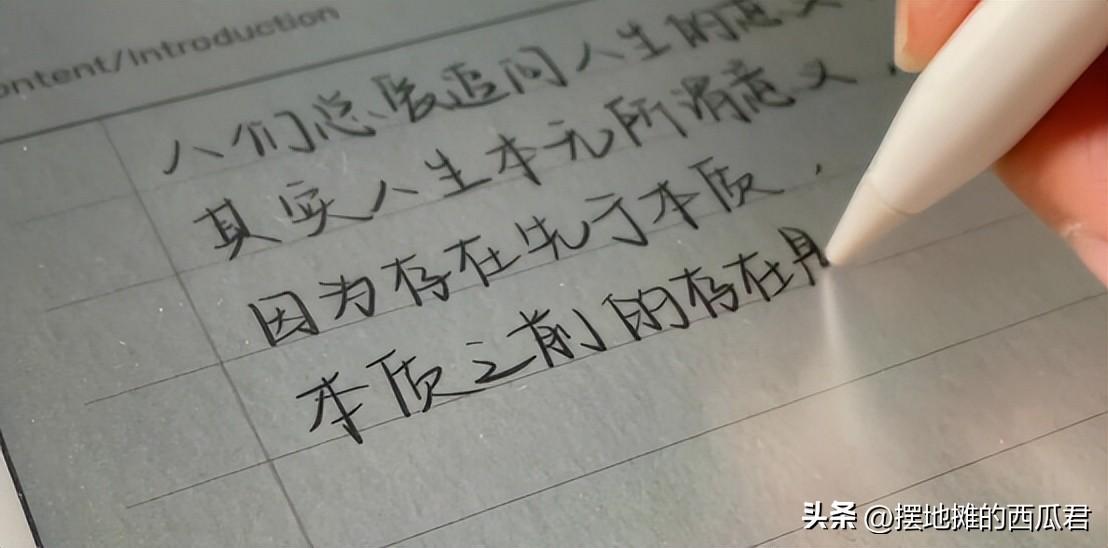 ontent/Introduction
人们总爱追问人生的意义
其实人生本无所谓意义，
因为存在先于本质，
本质之前的存在是
头条 @摆地摊的西瓜君